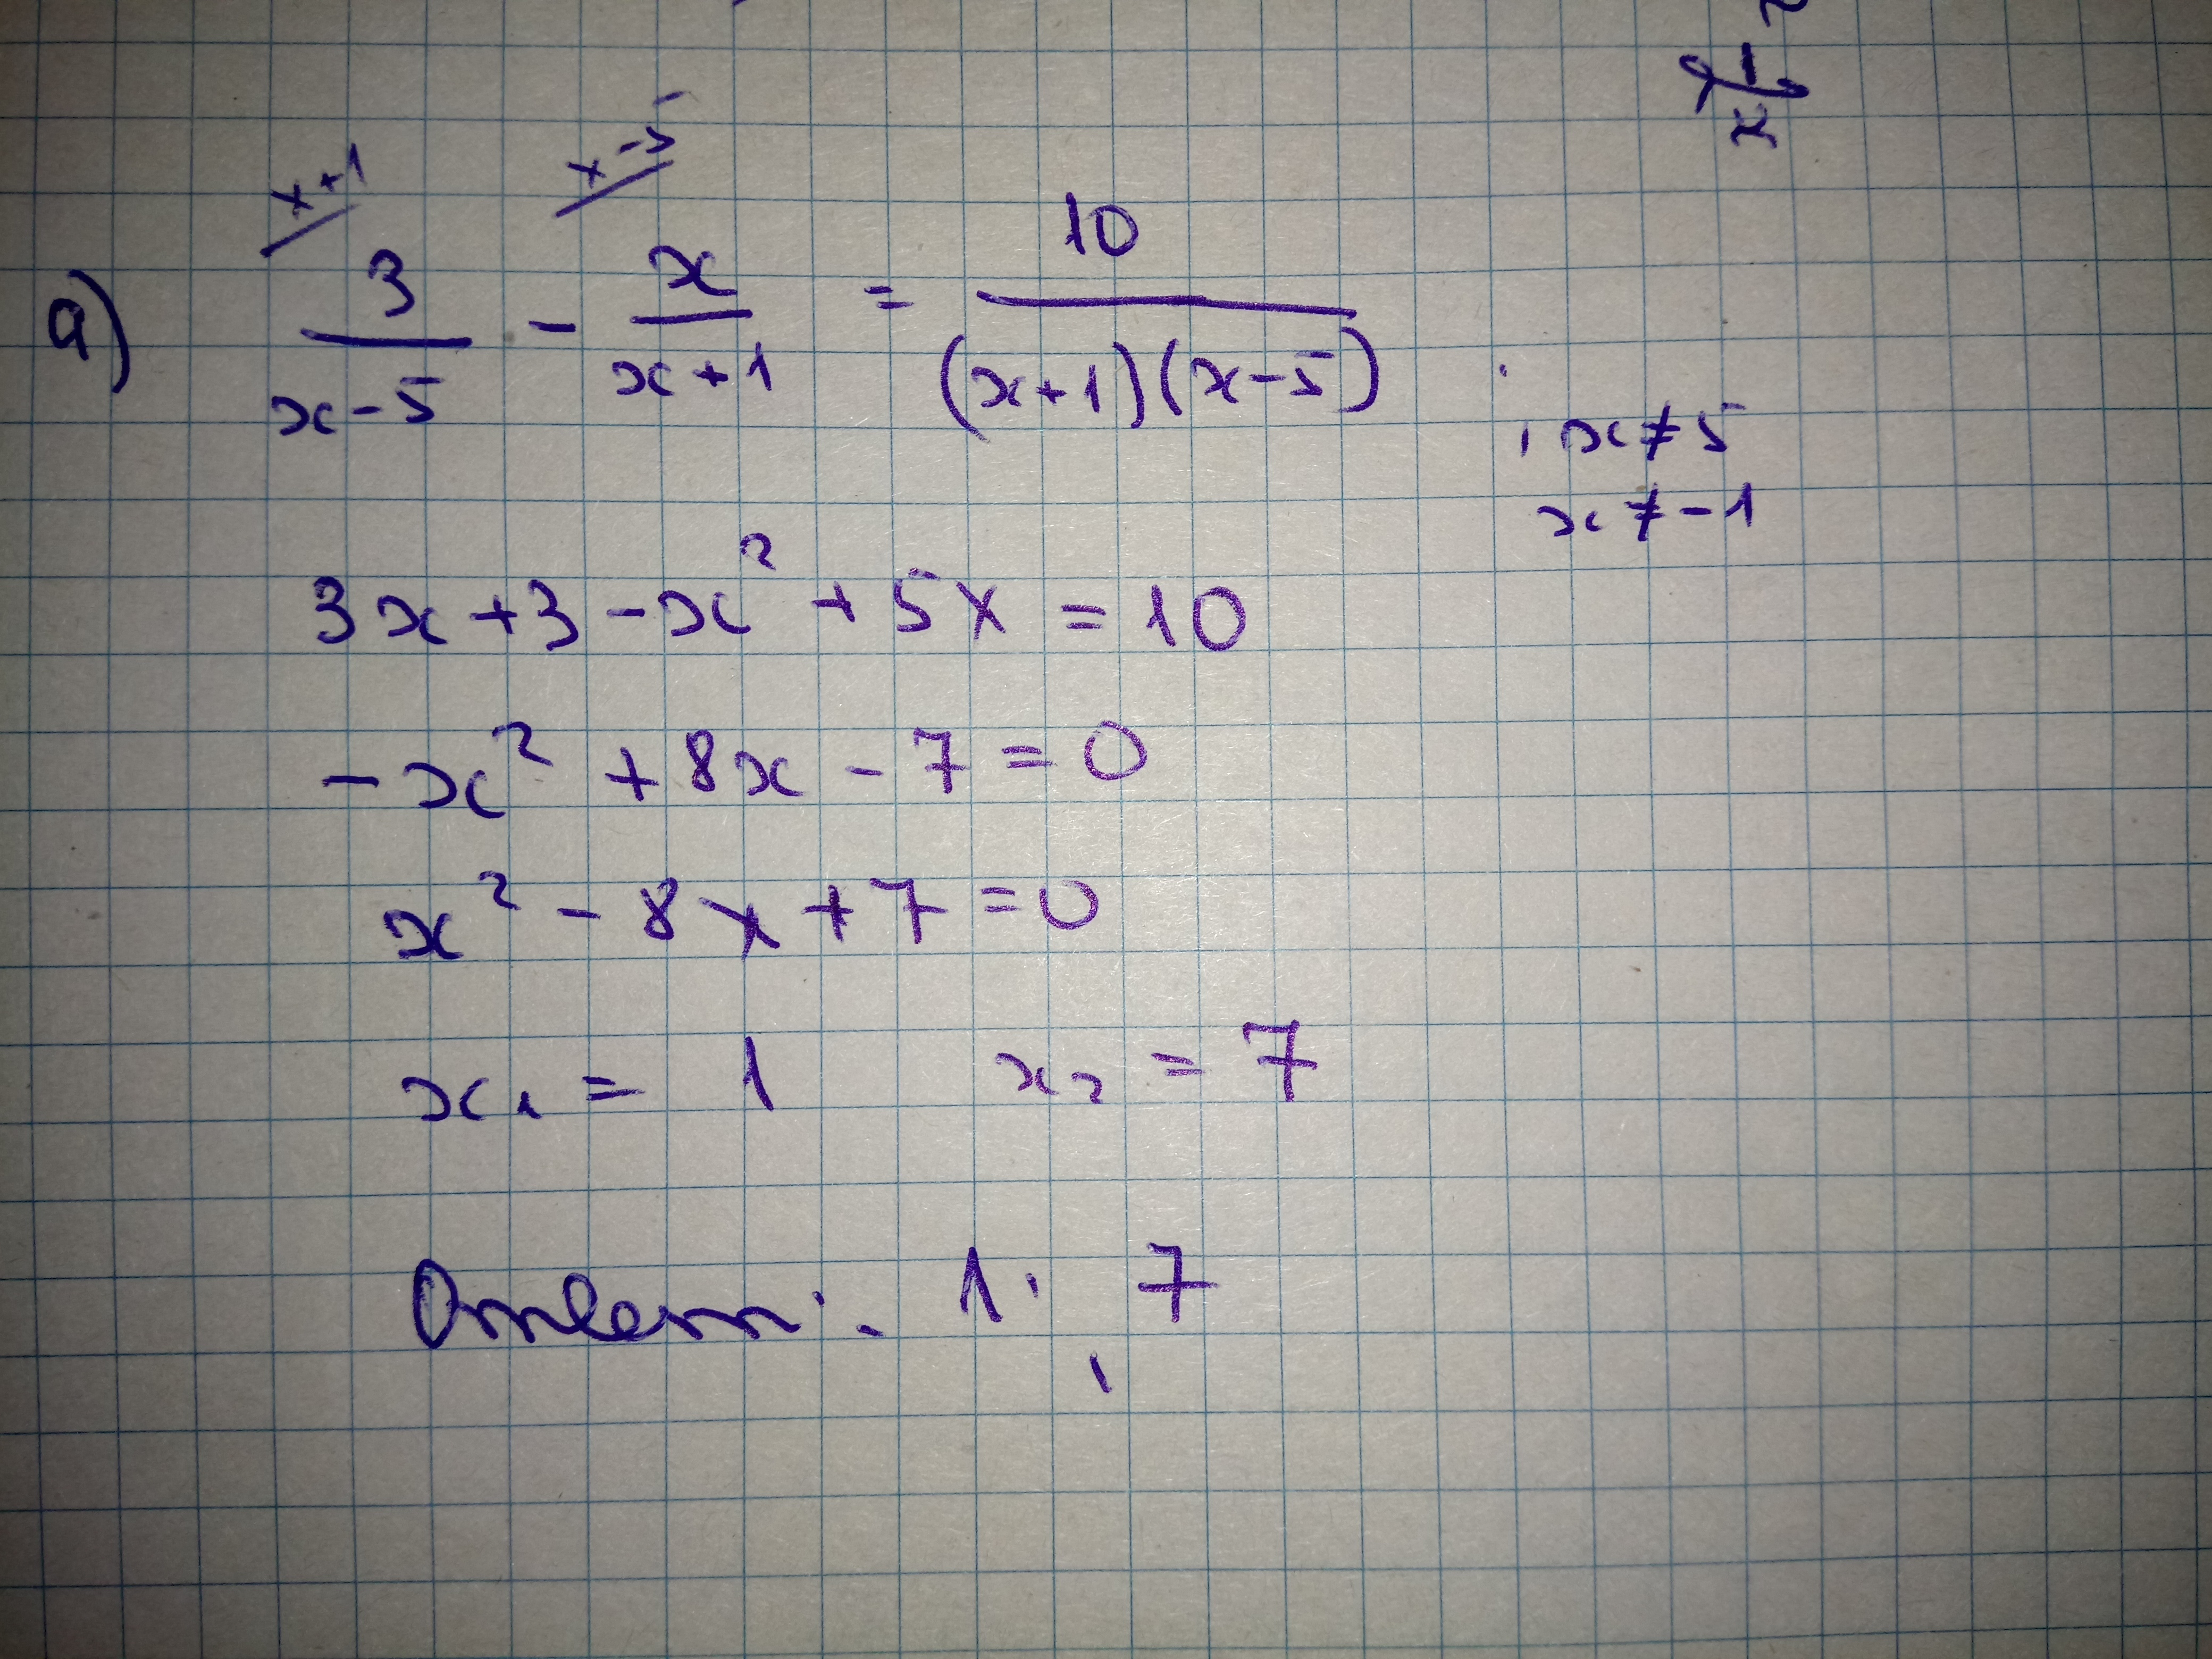 1/x
x+1 x-5
a) 3/(x-5) - x/(x+1) = 10/((x+1)(x-5)) , x≠5
x≠-1
3x+3-x²+5x=10
-x²+8x-7=0
x²-8x+7=0
x₁=1 x₂=7
Ответ: 1; 7